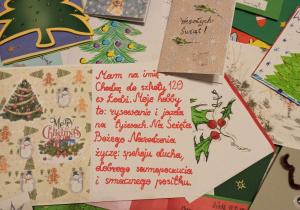 Wesołych
Świąt!
Mam na imię
Chodzę do szkoły 120
w Łodzi. Moje hobby
to: rysowanie i jazda
na łyżwach. Na Święta
Bożego Narodzenia
życzę: spokoju ducha,
dobrego samopoczucia
i smacznego posiłku.
Merry
Christmas